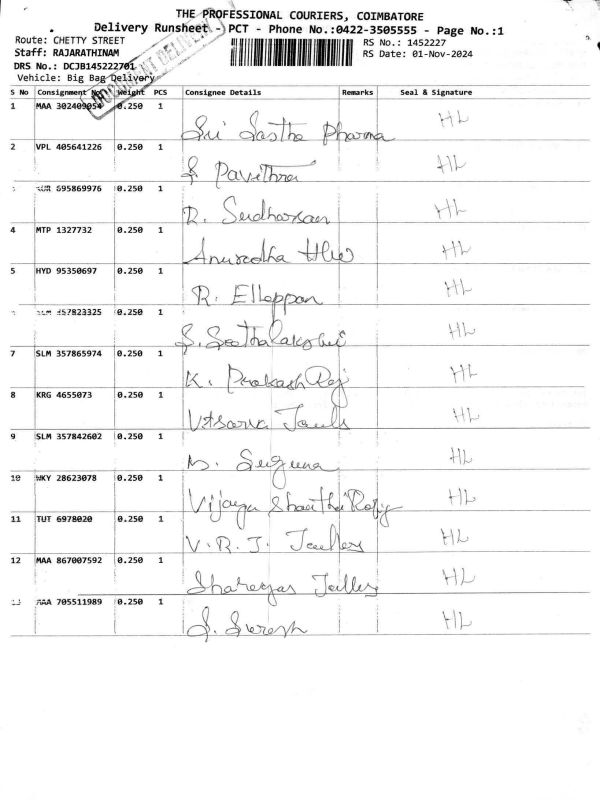 THE PROFESSIONAL COURIERS, COIMBATORE
Delivery Runsheet - PCT - Phone No.:0422-3505555 - Page No.:1
Route: CHETTY STREET
RS No.: 1452227
Staff: RAJARATHINAM
RS Date: 01-Nov-2024
DRS No.: DCJB145222701
Vehicle: Big Bag Delivery
S No Consignment No Weight PCS Consignee Details Remarks Seal & Signature
1 MAA 302409054 0.250 1
Sri Sastha Pharma HL
2 VPL 405641226 0.250 1
S Pavithra HL
695869976 0.250 1
R. Sudharsan HL
4 MTP 1327732 0.250 1
Anuradha HL
5 HYD 95350697 0.250 1
R. Elleppan HL
357823325 0.250 1
S. Seethalakshmi HL
7 SLM 357865974 0.250 1
K. Prakash Raj HL
8 KRG 4655073 0.250 1
HL
9 SLM 357842602 0.250 1
Suguna HL
10 WKY 28623078 0.250 1
Vijaya HL
11 TUT 6978020 0.250 1
V. R. J. HL
12 MAA 867007592 0.250 1
HL
13 MAA 705511989 0.250 1
S. Suresh HL